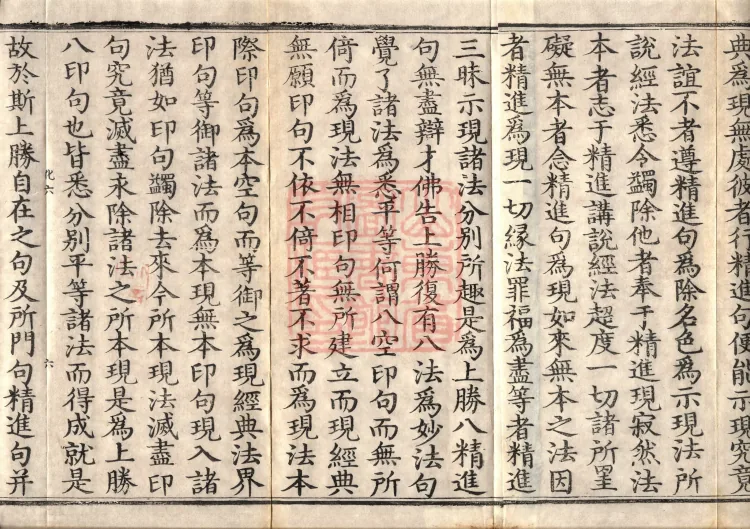 典為現無處彼者行精進句便能示現究竟
法誼不者遵精進句為除名色為示現法所
說經法悉令蠲除他者奉于精進現寂然法
本者志于精進講說經法超度一切諸所罣
礙無本者念精進句為現如來無本之法因
者精進為現一切緣法罪福為盡等者精進
三昧示現諸法分別所趣是為上勝八精進
句無盡辯才佛告上勝復有八法為妙法句
覺了諸法為悉平等何謂八空印句而無所
倚而為現法無相印句無所建立而現經典
無願印句不依不倚不著不求而為現法本
際印句為本空句而等御之為現經典法界
印句等御諸法而為本現無本印句現入諸
法猶如印句蠲除去來今所本現法滅盡印
句究竟滅盡永除諸法之所本現是為上勝
八印句也皆悉分別平等諸法而得成就是
化六 六
故於斯上勝自在之句及所門句精進句并